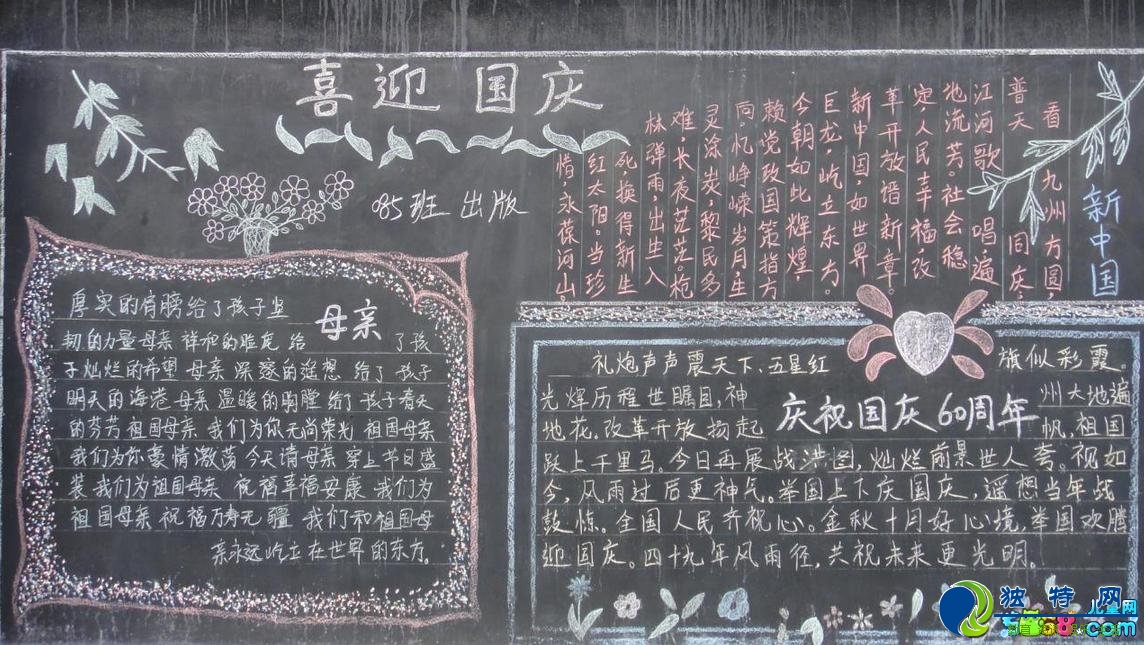 喜迎国庆
085班 出版
新中国
看 九州方圆,
普天 同庆,
江河歌 唱遍
地流芳。社会稳
定,人民幸福改
革开放谱新章。
新中国,如世界
巨龙,屹立东方。
今朝如此辉煌,
赖党政国策指方
向忆峥嵘岁月,生
灵涂炭,黎民多
难长夜茫茫。枪
林弹雨,出生入
死,换得新生
红太阳。当珍
惜,永葆河山。
母亲
厚实的肩膀给了孩子坚
韧的力量母亲 祥和的 给 了孩
子灿烂的希望 母亲 深邃的遥想 给了 孩子
明天的海港 母亲 温暖的胸膛 给了 孩子春天
的芬芳 祖国母亲 我们为你无尚荣光 祖国母亲
我们为你豪情激荡 今天请母亲 穿上节日盛
装 我们为祖国母亲 祝福幸福安康 我们为
祖国母亲 祝福万寿无疆 我们和祖国母
亲永远屹立在世界的东方。
庆祝国庆60周年
礼炮声声震天下,五星红 旗似彩霞。
光辉历程世瞩目,神 州大地遍
地花。改革开放扬起 帆,祖国
跃上千里马。今日再展战洪图,灿烂前景世人夸。视如
今,风雨过后更神气。举国上下庆国庆,遥想当年战
鼓惊。全国人民齐祝心。金秋十月好心境,举国欢腾
迎国庆。四十九年风雨径,共祝未来更光明。
独特网
儿童网
.com